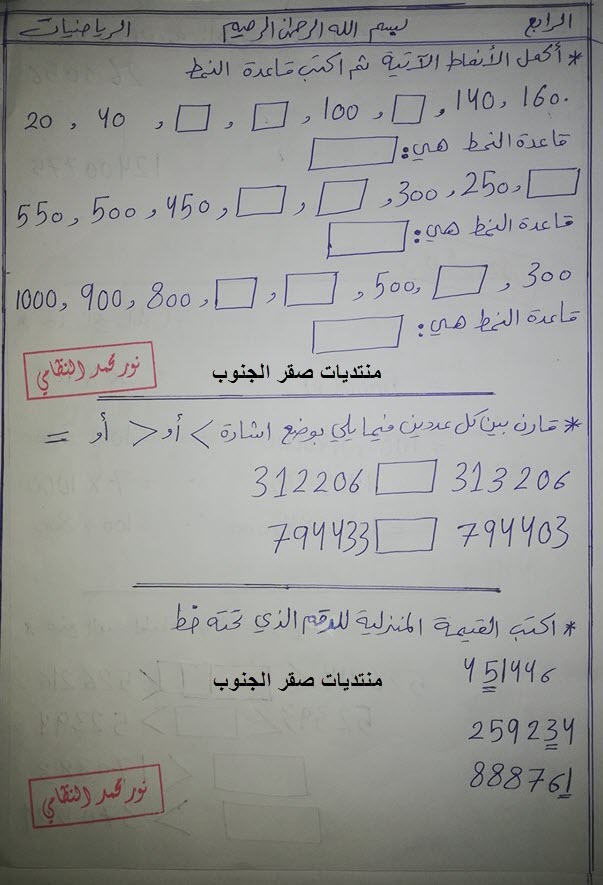 الرابع بسم الله الرحمن الرحيم الرياضيات
* أكمل الأنماط الآتية ثم اكتب قاعدة النمط
20 , 40 , □ , □ , 100 , □ , 140 , 160
قاعدة النمط هي:
550 , 500 , 450 , □ , □ , 300 , 250 , □
قاعدة النمط هي:
1000 , 900 , 800 , □ , □ , 500 , □ , 300
قاعدة النمط هي:
نور محمد النظامي
منتديات صقر الجنوب
* قارن بين كل عددين فيما يلي بوضع اشارة < أو > أو =
312206 □ 313206
794433 □ 794403
* اكتب القيمة المنزلية للرقم الذي تحته خط
451446
منتديات صقر الجنوب
259234
888761
نور محمد النظامي